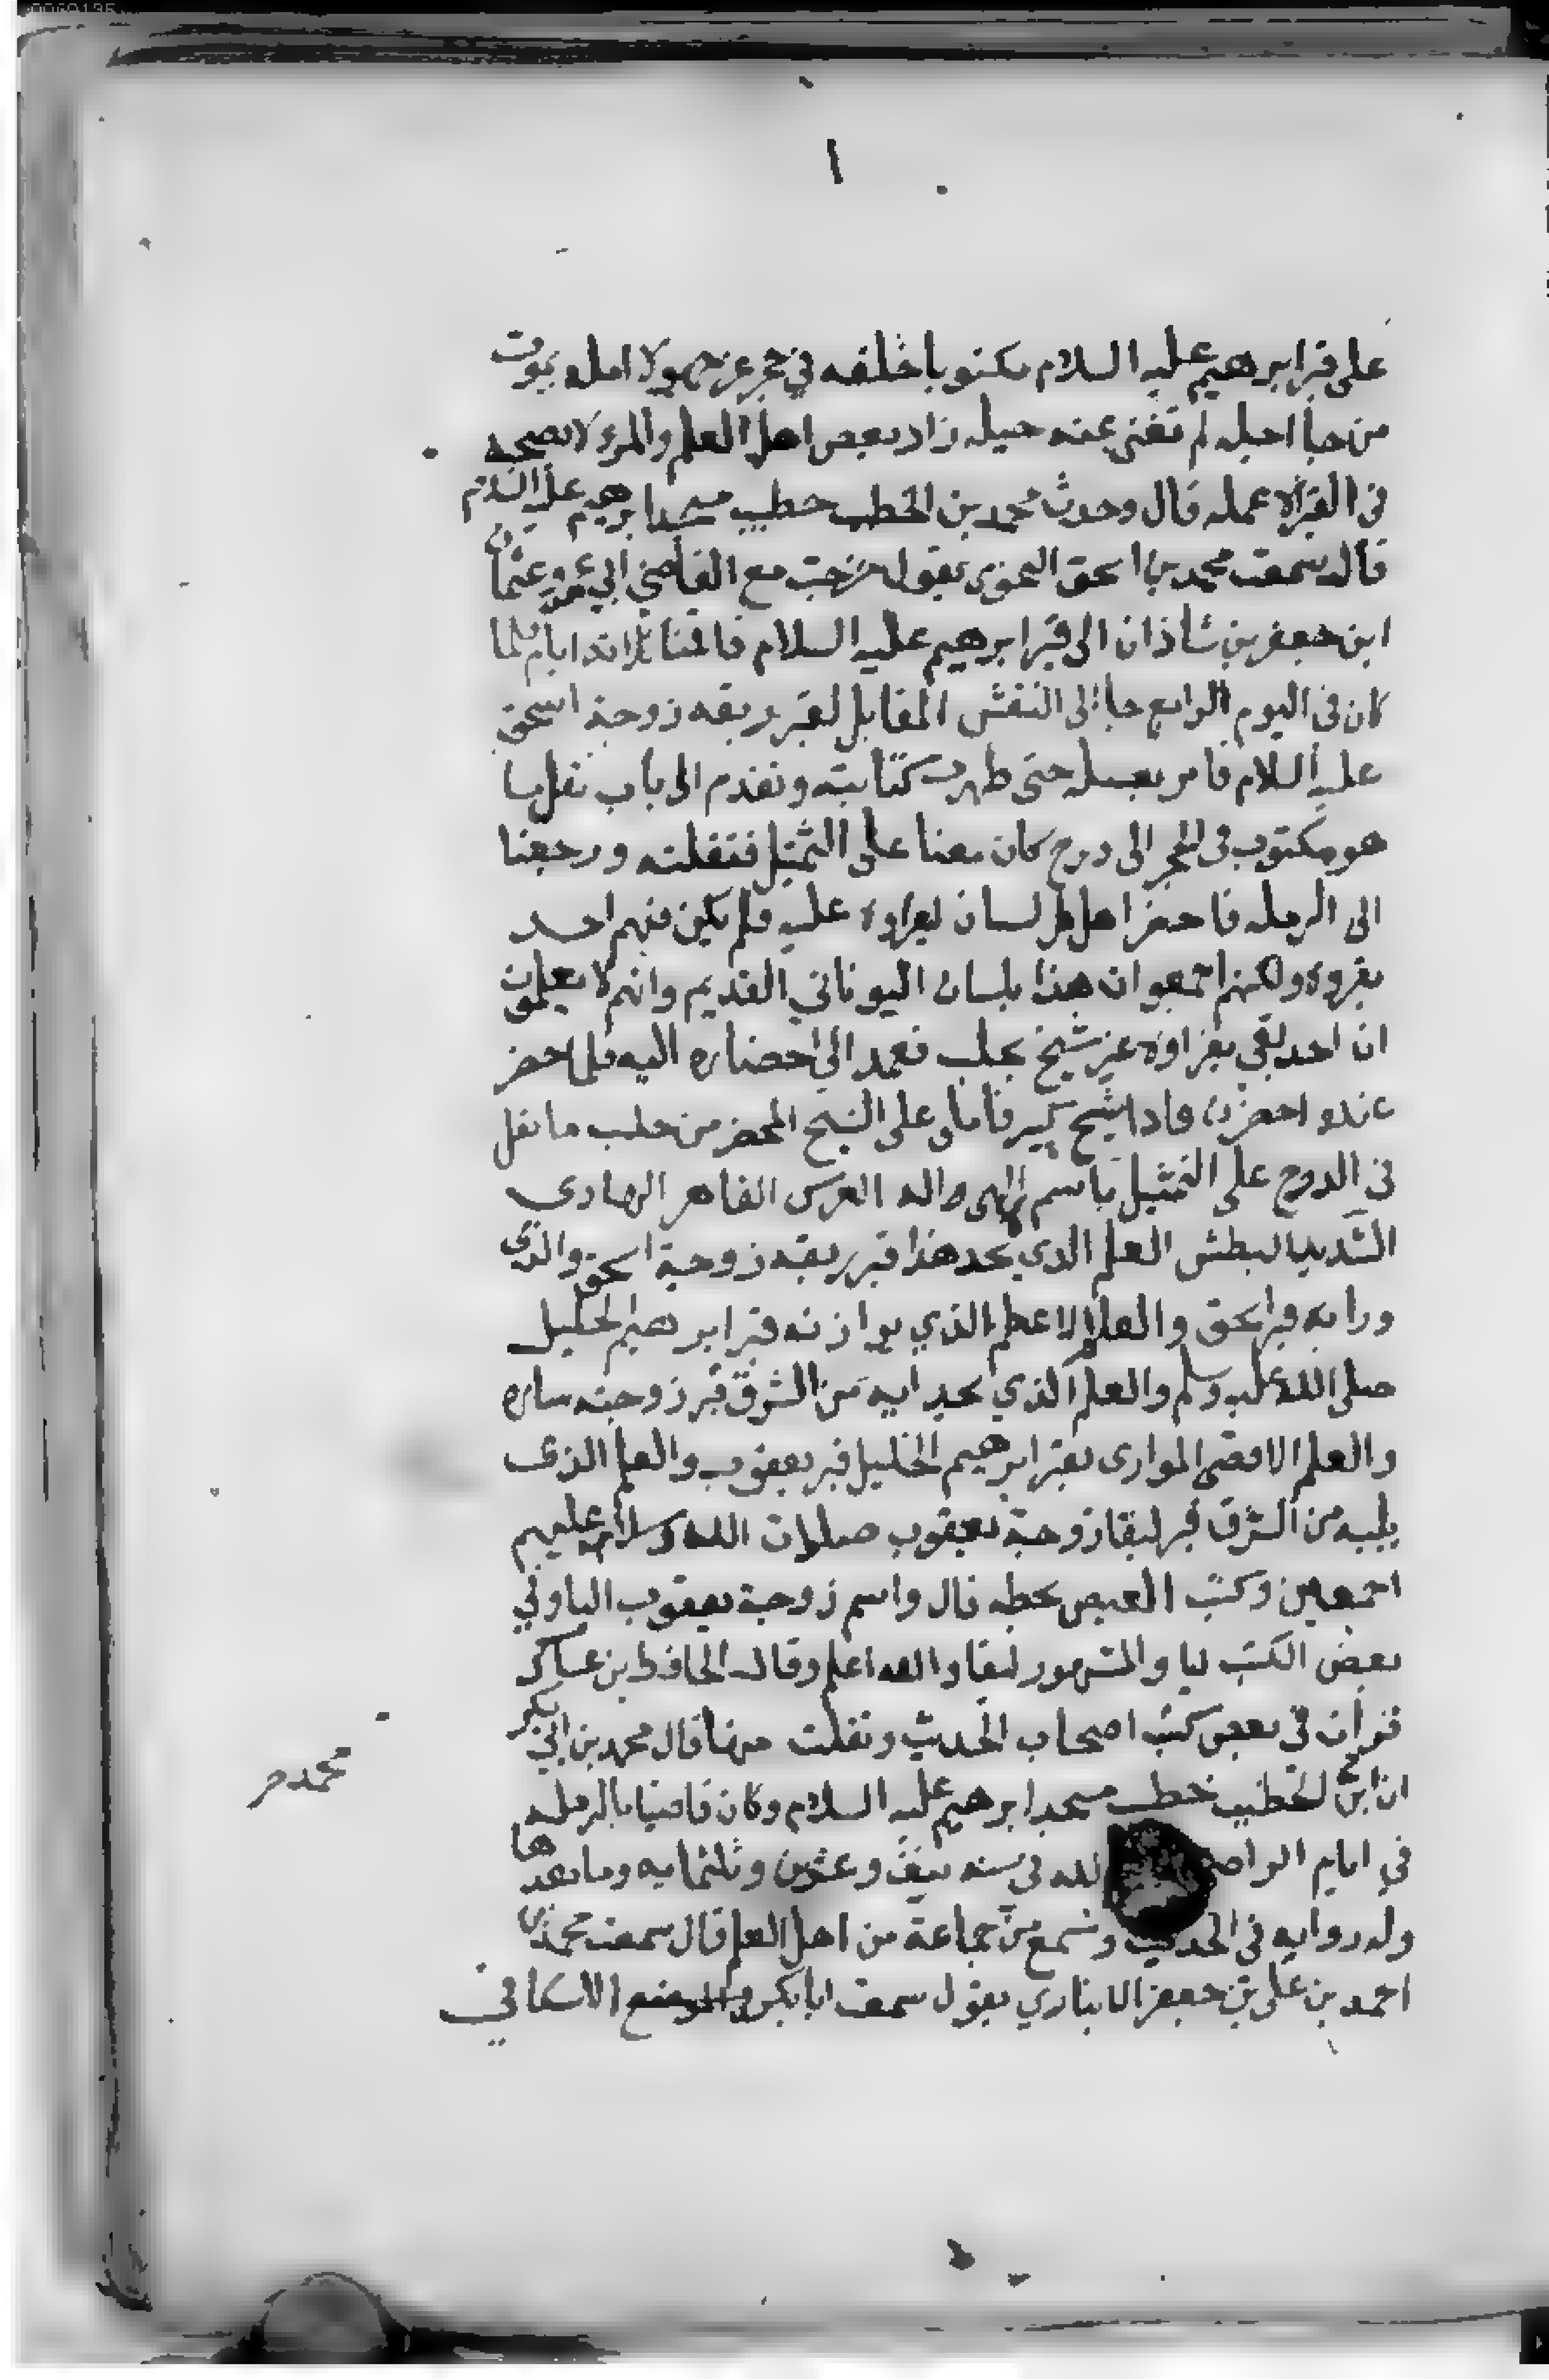 ١
على قبر ابرهيم عليه السلام مكتوبا خلفه في حجر غر جهولا امله يموت
من جا اجله لم تغنى عنه حيله زاد بعض اهل العلم والمرء لا يصحبه
في القبر الا عمله قال وحدث محمد بن الخطب خطيب مسجد ابرهيم عليه السلام
قال سمعت محمد بن اسحق النحوى يقول خرجت مع القاضي ابي عمرو عثمان
ابن جعفر بن شاذان الى قبر ابرهيم عليه السلام فاقمنا ثلاثه ايام فلما
كان في اليوم الرابع جا الى النقش المقابل لقبر ربقه زوجة اسحق
عليه السلام فامر بغسله حتى ظهرت كتابته وتقدم الى باب نقل ما
هو مكتوب في الحجر الى درج كان معنا على التمثيل فنقلته ورجعنا
الى الرمله فاحضر اهل كل لسان ليقراوه عليه فلم يكن فيهم احد
يقروه ولكنهم اجمعو ان هذا بلسان اليوناني القديم وانهم لا يعلمون
ان احد بقى يقراوه غير شيخ بحلب فعمد الى احضاره اليه فلما حضر
عنده احضرني فاذا شيخ كبير فاملى على الشيخ المحضر من حلب ما نقل
في الدرج على التمثيل باسم الهى واله العرش القاهر الهادى
الشديد البطش العلم الذي بحد هذا قبر ربقه زوجة اسحق والذي
وراىه قبر اسحق والعلم الاعظم الذي يوازنه قبر ابرهيم الخليل
صلى الله عليه وسلم والعلم الذي بحدايه من الشرق قبر زوجته ساره
والعلم الاقصى الموازى لقبر ابرهيم الخليل قبر يعقوب والعلم الذى
يليه من الشرق قبر ليقا زوجة يعقوب صلوات الله وسلامه عليهم
اجمعين وكتب العيص بخطه قال واسم زوجة يعقوب ليا وفي
بعض الكتب ليا والمشهور ليقا والله اعلم وقال الحافظ بن عساكر
قرات في بعض كتب اصحاب الحديث ونقلت منها قال محمد بن ابي بكر
ان ابن الخطيب خطيب مسجد ابرهيم عليه السلام وكان قاضيا بالرمله
في ايام الراضي لله في سنه نيف وعشرين وثلثمايه وما بعدها
وله روايه في الحديث وسمع من جماعة من اهل العلم قال سمعت محمد بن
احمد بن على بن جعفر الانباري يقول سمعت ابا بكر الاسكافي
محمد